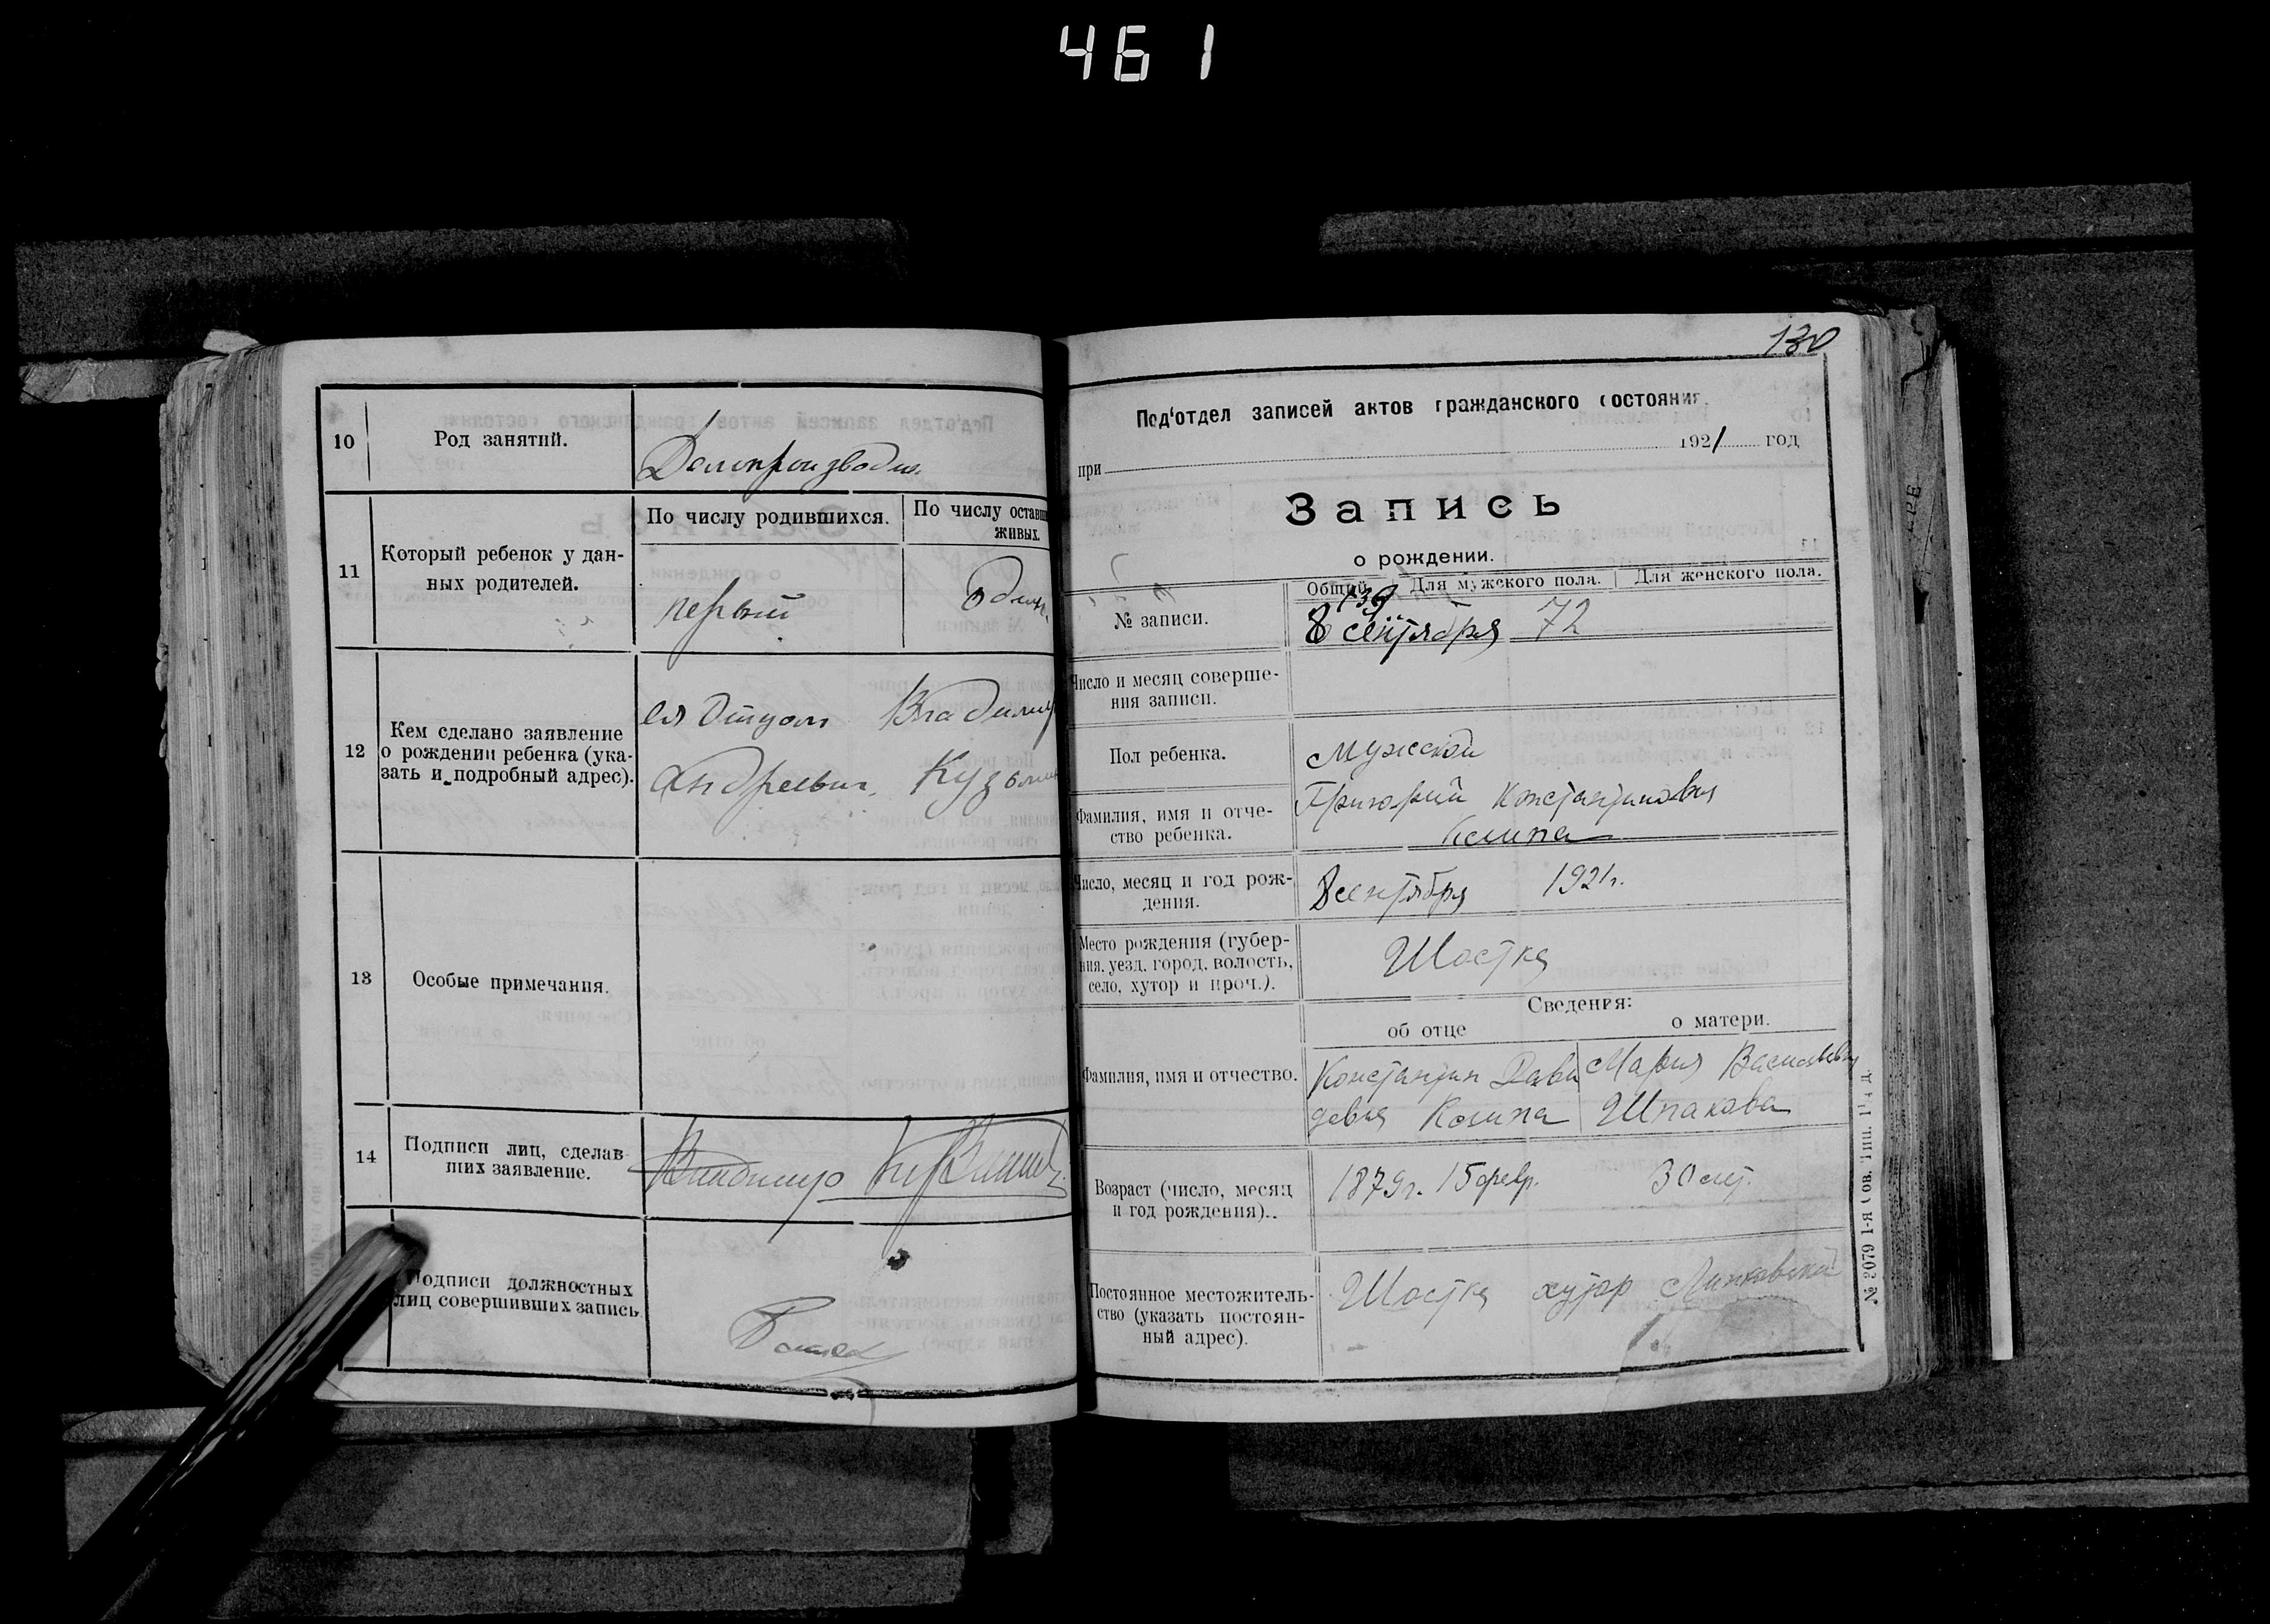 461
10
Род занятий.
Делопроизводит.
11
Который ребенок у дан-
ных родителей.
По числу родившихся.
По числу оставш
живых.
первый
один.
12
Кем сделано заявление
о рождении ребенка (ука-
зать и подробный адрес).
ея Отцом Владимир
Андреевич. Кузьмин
13
Особые примечания.
14
Подписи лиц, сделав-
ших заявление.
Владимир
Подписи должностных
лиц совершивших запись
130
Под‘отдел записей актов гражданского состояния.
при 1921 год
Запись
о рождении.
Общий Для мужского пола. Для женского пола.
№ записи.
139
8 сентября 72
Число и месяц соверше-
ния записи.
Пол ребенка.
Мужской
Фамилия, имя и отче-
ство ребенка.
Григорий Константинович
Число, месяц и год рож-
дения.
8 сентября 1921г.
Место рождения (губер-
ния, уезд, город, волость,
село, хутор и проч.).
Шостка
Сведения:
об отце
о матери.
Фамилия, имя и отчество.
Константин Дави
дович
Мария Васильевна
Шпакова
Возраст (число, месяц
и год рождения)..
1879г. 15 февр.
30 лет.
Постоянное местожитель-
ство (указать постоян-
ный адрес).
Шостка хутор
№ 2079 1-я Сов. Тип.